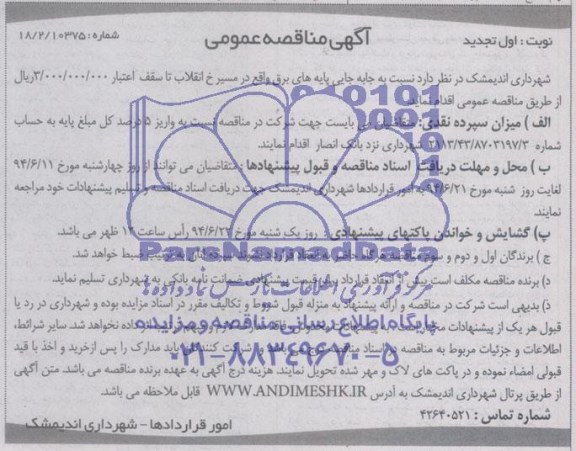 آگهی مناقصه عمومی
نوبت: اول تجدید
شماره: ۱۸/۲/۱۰۳۷۵
شهرداری اندیمشک در نظر دارد نسبت به جابه جایی پایه های برق واقع در مسیر خ انقلاب تا سقف اعتبار ۳/۰۰۰/۰۰۰/۰۰۰ریال
از طریق مناقصه عمومی اقدام نماید.
الف ) میزان سپرده نقدی: متقاضیان می بایست جهت شرکت در مناقصه نسبت به واریز ۵ درصد کل مبلغ پایه به حساب
شماره ۲۱۱۳/۴۳/۸۷۰۳۱۹۷/۳ شهرداری نزد بانک انصار اقدام نمایند.
ب ) محل و مهلت دریافت اسناد مناقصه و قبول پیشنهادها : متقاضیان می توانند از روز چهارشنبه مورخ ۹۴/۶/۱۱
لغایت روز شنبه مورخ ۹۴/۶/۲۱ به امور قراردادها شهرداری اندیمشک جهت دریافت اسناد مناقصه و تسلیم پیشنهادات خود مراجعه
نمایند.
پ) گشایش و خواندن پاکتهای پیشنهادی : روز یک شنبه مورخ ۹۴/۶/۲۲ رأس ساعت ۱۲ ظهر می باشد.
ج ) برندگان اول و دوم و سوم هرگاه حاضر به انعقاد قرارداد نشوند سپرده آنان به ترتیب ضبط خواهد شد.
د) برنده مناقصه مکلف است پس از انعقاد قرارداد قیمت پیشنهادی ضمانت نامه بانکی به شهرداری تسلیم نماید.
ذ) بدیهی است شرکت در مناقصه و ارائه پیشنهاد به منزله قبول شروط و تکالیف مقرر در اسناد مزایده بوده و شهرداری در رد یا
قبول هر یک از پیشنهادات داده نخواهد شد. سایر شرائط،
اطلاعات و جزئیات مربوط به مناقصه در اسناد مناقصه شرکت کنندگان باید مدارک را پس ازخرید و اخذ با قید
قبولی امضاء نموده و در پاکت های لاک و مهر شده تحویل نمایند. هزینه درج آگهی به عهده برنده مناقصه می باشد. متن آگهی
از طریق پرتال شهرداری اندیمشک به آدرس WWW.ANDIMESHK.IR قابل ملاحظه می باشد.
شماره تماس : ۴۲۶۴۰۵۲۱
امور قراردادها – شهرداری اندیمشک
ParsNamadData
مرکز فرآوری اطلاعات پارس نماد داده ها
پایگاه اطلاع رسانی مناقصه و مزایده
۰۲۱-۸۸۳۴۹۶۷۰-۵